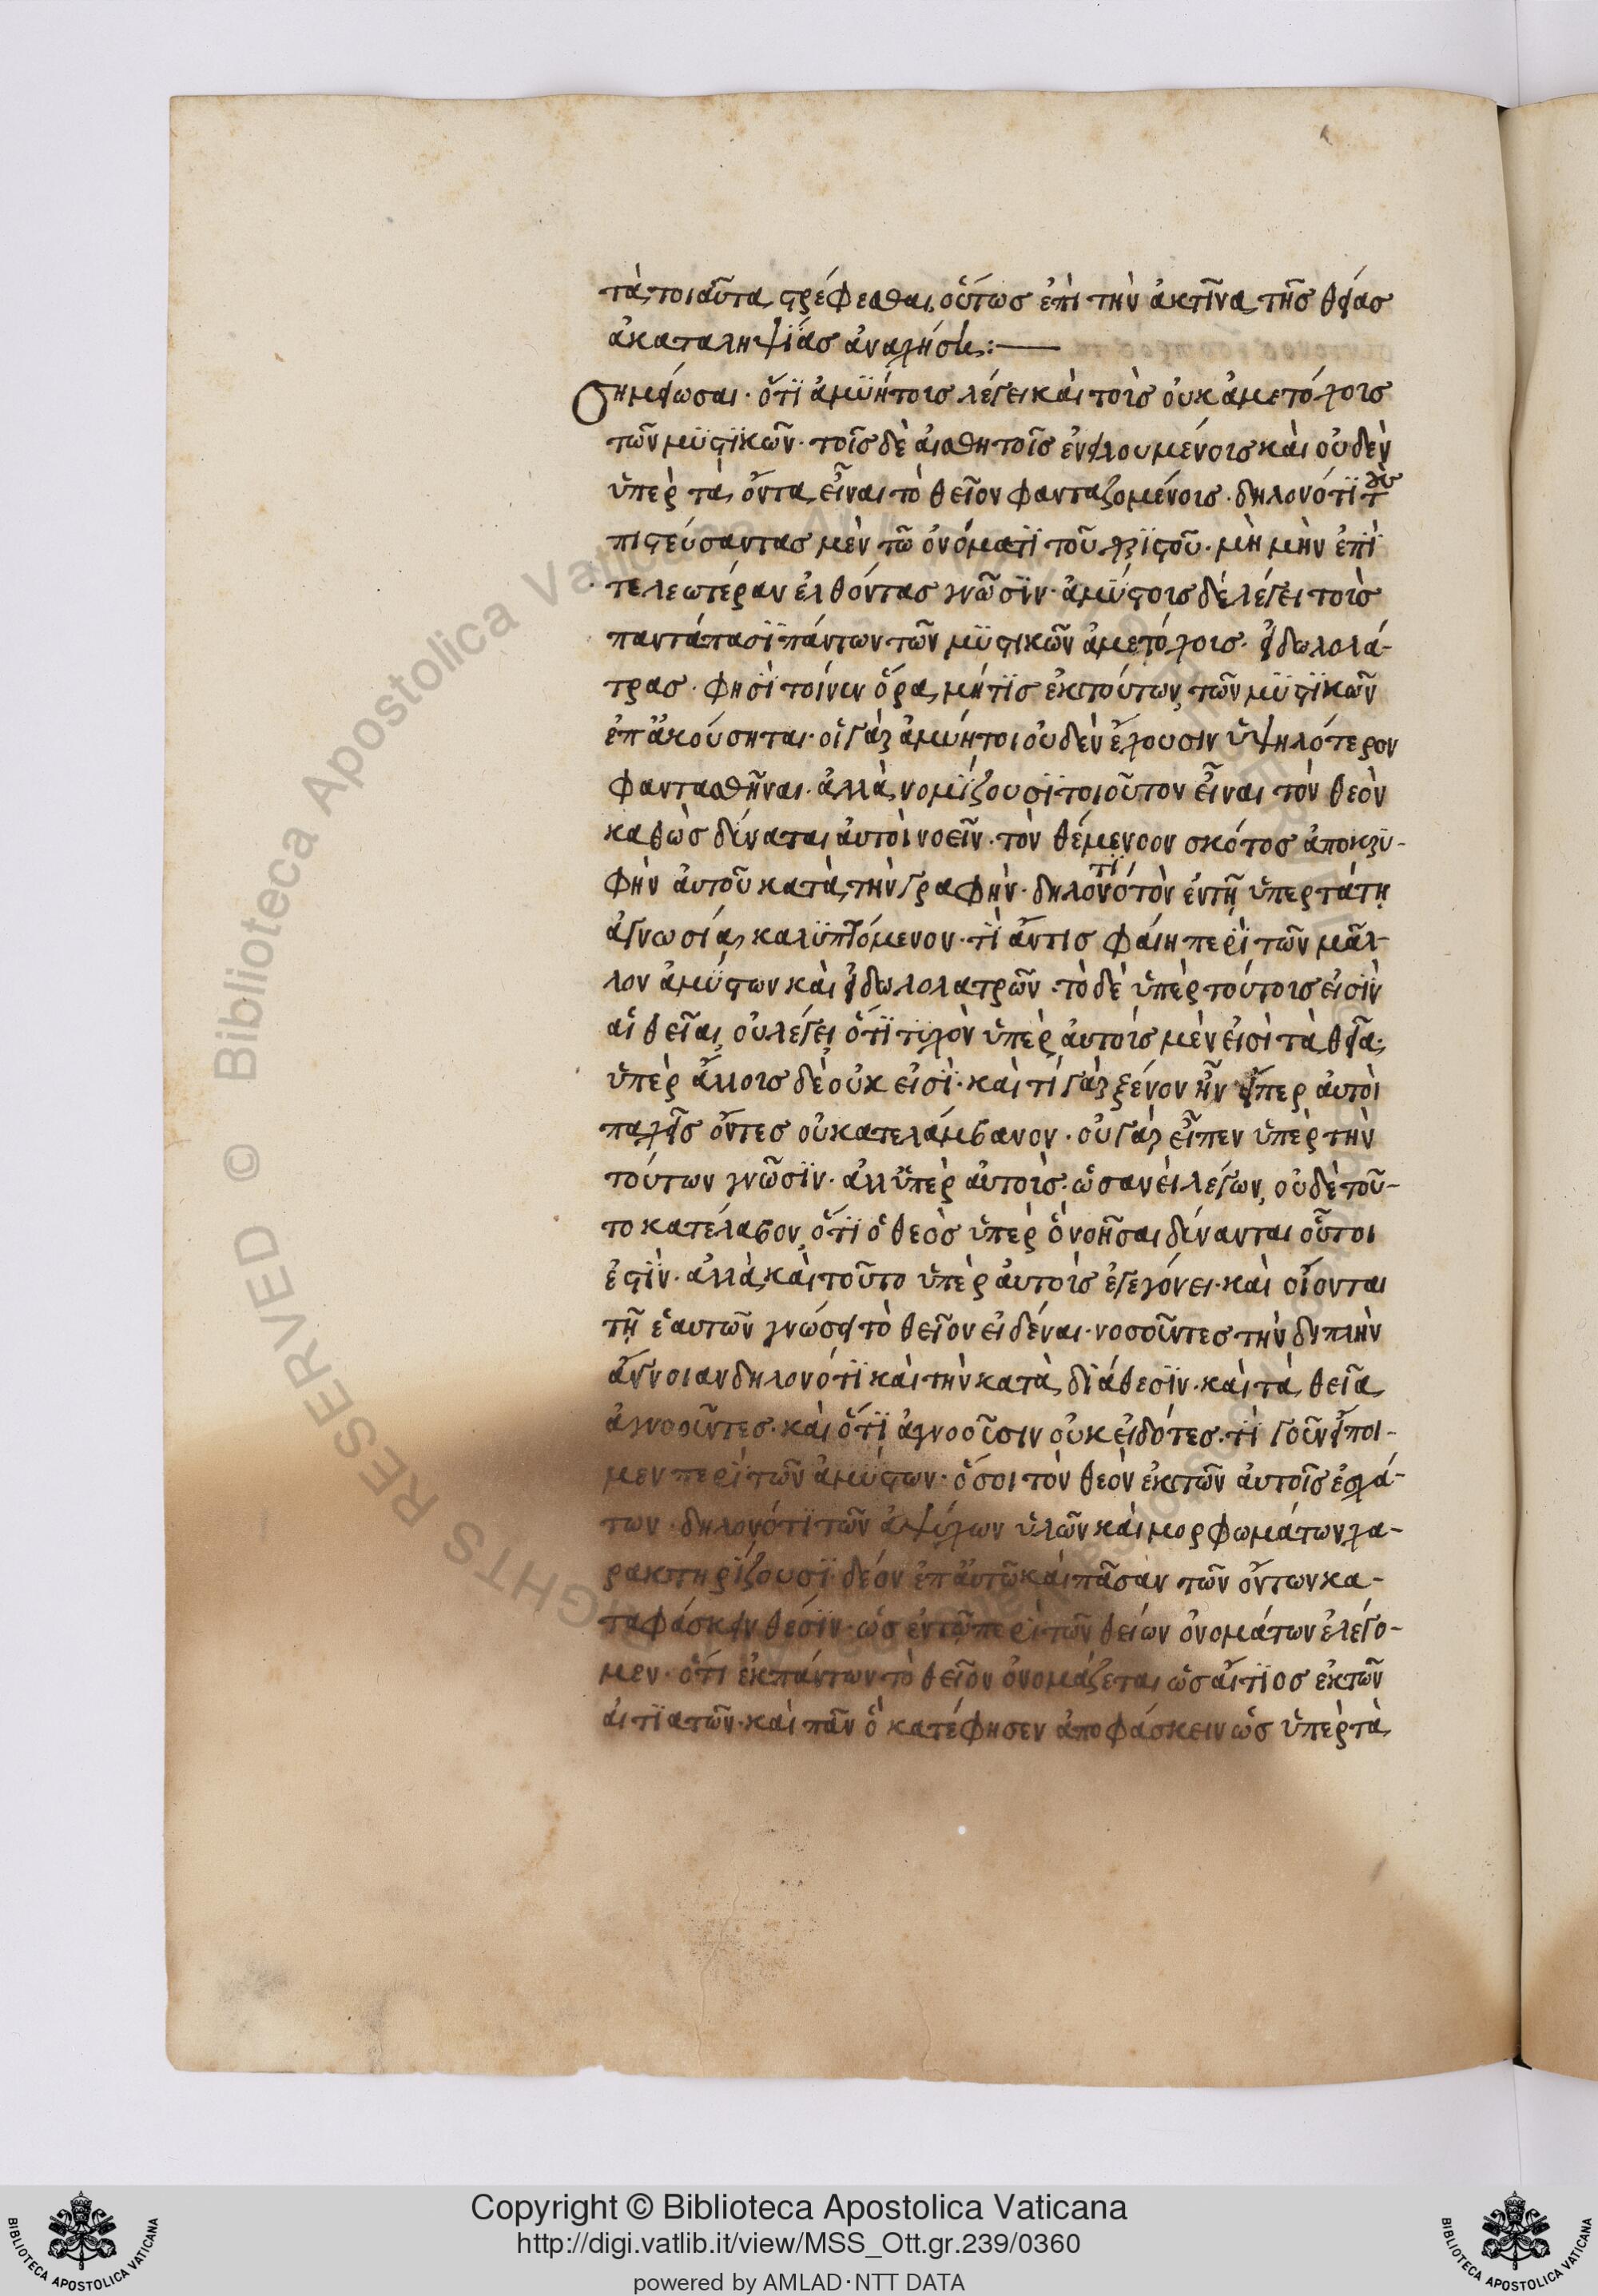 τὰ τοιαῦτα στρέφεσθαι, οὕτως ἐπὶ τὴν ἀκτῖνα τῆς θείας
ἀκαταληψίας ἀναχθήσῃ:
Σημείωσαι· ὅτι ἀμυήτοις λέγει καὶ τοῖς οὐκ ἀμετόχοις
τῶν μυστικῶν· τοῖς δὲ αἰσθητοῖς ἐνειλουμένοις καὶ οὐδὲν
ὑπὲρ τὰ ὄντα εἶναι τὸ θεῖον φανταζομένοις· δηλονότι τοὺς
πιστεύσαντας μὲν τῶ ὀνόματι τοῦ χριστοῦ· μὴ μὴν ἐπὶ
τελεωτέραν ἐλθόντας γνῶσιν· ἀμύστοις δὲ λέγει τοῖς
παντάπασι πάντων τῶν μυστικῶν ἀμετόχοις· εἰδωλολά-
τρας· φησὶ τοίνυν ὅρα, μήτις ἐκ τούτων τῶν μυστικῶν
ἐπακούσηται· οἱ γὰρ ἀμύητοι οὐδὲν ἔχουσιν ὑψηλότερον
φαντασθῆναι· ἀλλὰ νομίζουσι τοιοῦτον εἶναι τὸν θεὸν
καθὼς δύναται αὐτοὶ νοεῖν· τὸν θέμενον σκότος ἀποκρυ-
φὴν αὐτοῦ κατὰ τὴν γραφὴν· δηλονότι τὸν ἐν τῇ ὑπερτάτῃ
ἀγνωσία καλυπτόμενον· τί ἄν τις φαίη περὶ τῶν μᾶλ-
λον ἀμύστων καὶ εἰδωλολατρῶν· τὸ δὲ ὑπὲρ τούτοις εἰσὶν
αἱ θεῖαι, οὐ λέγει ὅτι τυχὸν ὑπὲρ αὐτοῖς μὲν εἰσὶ τὰ θεῖα·
ὑπὲρ ἄλλοις δὲ οὐκ εἰσὶ· καὶ τί γὰρ ξένον ἦν εἴπερ αὐτοὶ
παχεῖς ὄντες οὐ κατελάμβανον· οὐ γὰρ εἶπεν ὑπὲρ τὴν
τούτων γνῶσιν· ἀλλ' ὑπὲρ αὐτοῖς· ὡσανεὶ λέγων, οὐδὲ τοῦ-
το κατέλαβον, ὅτι ὁ θεὸς ὑπὲρ ὃ νοῆσαι δύνανται οὗτοι
ἐστὶν· ἀλλὰ καὶ τοῦτο ὑπὲρ αὐτοῖς ἐγεγόνει· καὶ οἴονται
τῇ ἑαυτῶν γνώσει τὸ θεῖον εἰδέναι· νοσοῦντες τὴν διπλὴν
ἄγνοιαν δηλονότι καὶ τὴν κατὰ διάθεσιν· καὶ τὰ θεῖα
ἀγνοοῦντες· καὶ ὅτι ἀγνοοῦσιν οὐκ εἰδότες· τί γοῦν εἴποι-
μεν περὶ τῶν ἀμύστων· ὅσοι τὸν θεὸν ἐκ τῶν αὐτοῖς ἐσχά-
των· δηλονότι τῶν ἀψύχων ὑλῶν καὶ μορφωμάτων χα-
ρακτηρίζουσι· δέον ἐπ' αὐτῶ καὶ πᾶσαν τῶν ὄντων κα-
ταφάσκειν θέσιν· ὡς ἐν τῶ περὶ τῶν θείων ὀνομάτων ἐλέγο-
μεν· ὅτι ἐκ πάντων τὸ θεῖον ὀνομάζεται ὡς αἴτιος ἐκ τῶν
αἰτιατῶν· καὶ πᾶν ὃ κατέφησεν ἀποφάσκειν ὡς ὑπὲρ τὰ
Copyright © Biblioteca Apostolica Vaticana
http://digi.vatlib.it/view/MSS_Ott.gr.239/0360
powered by AMLAD·NTT DATA